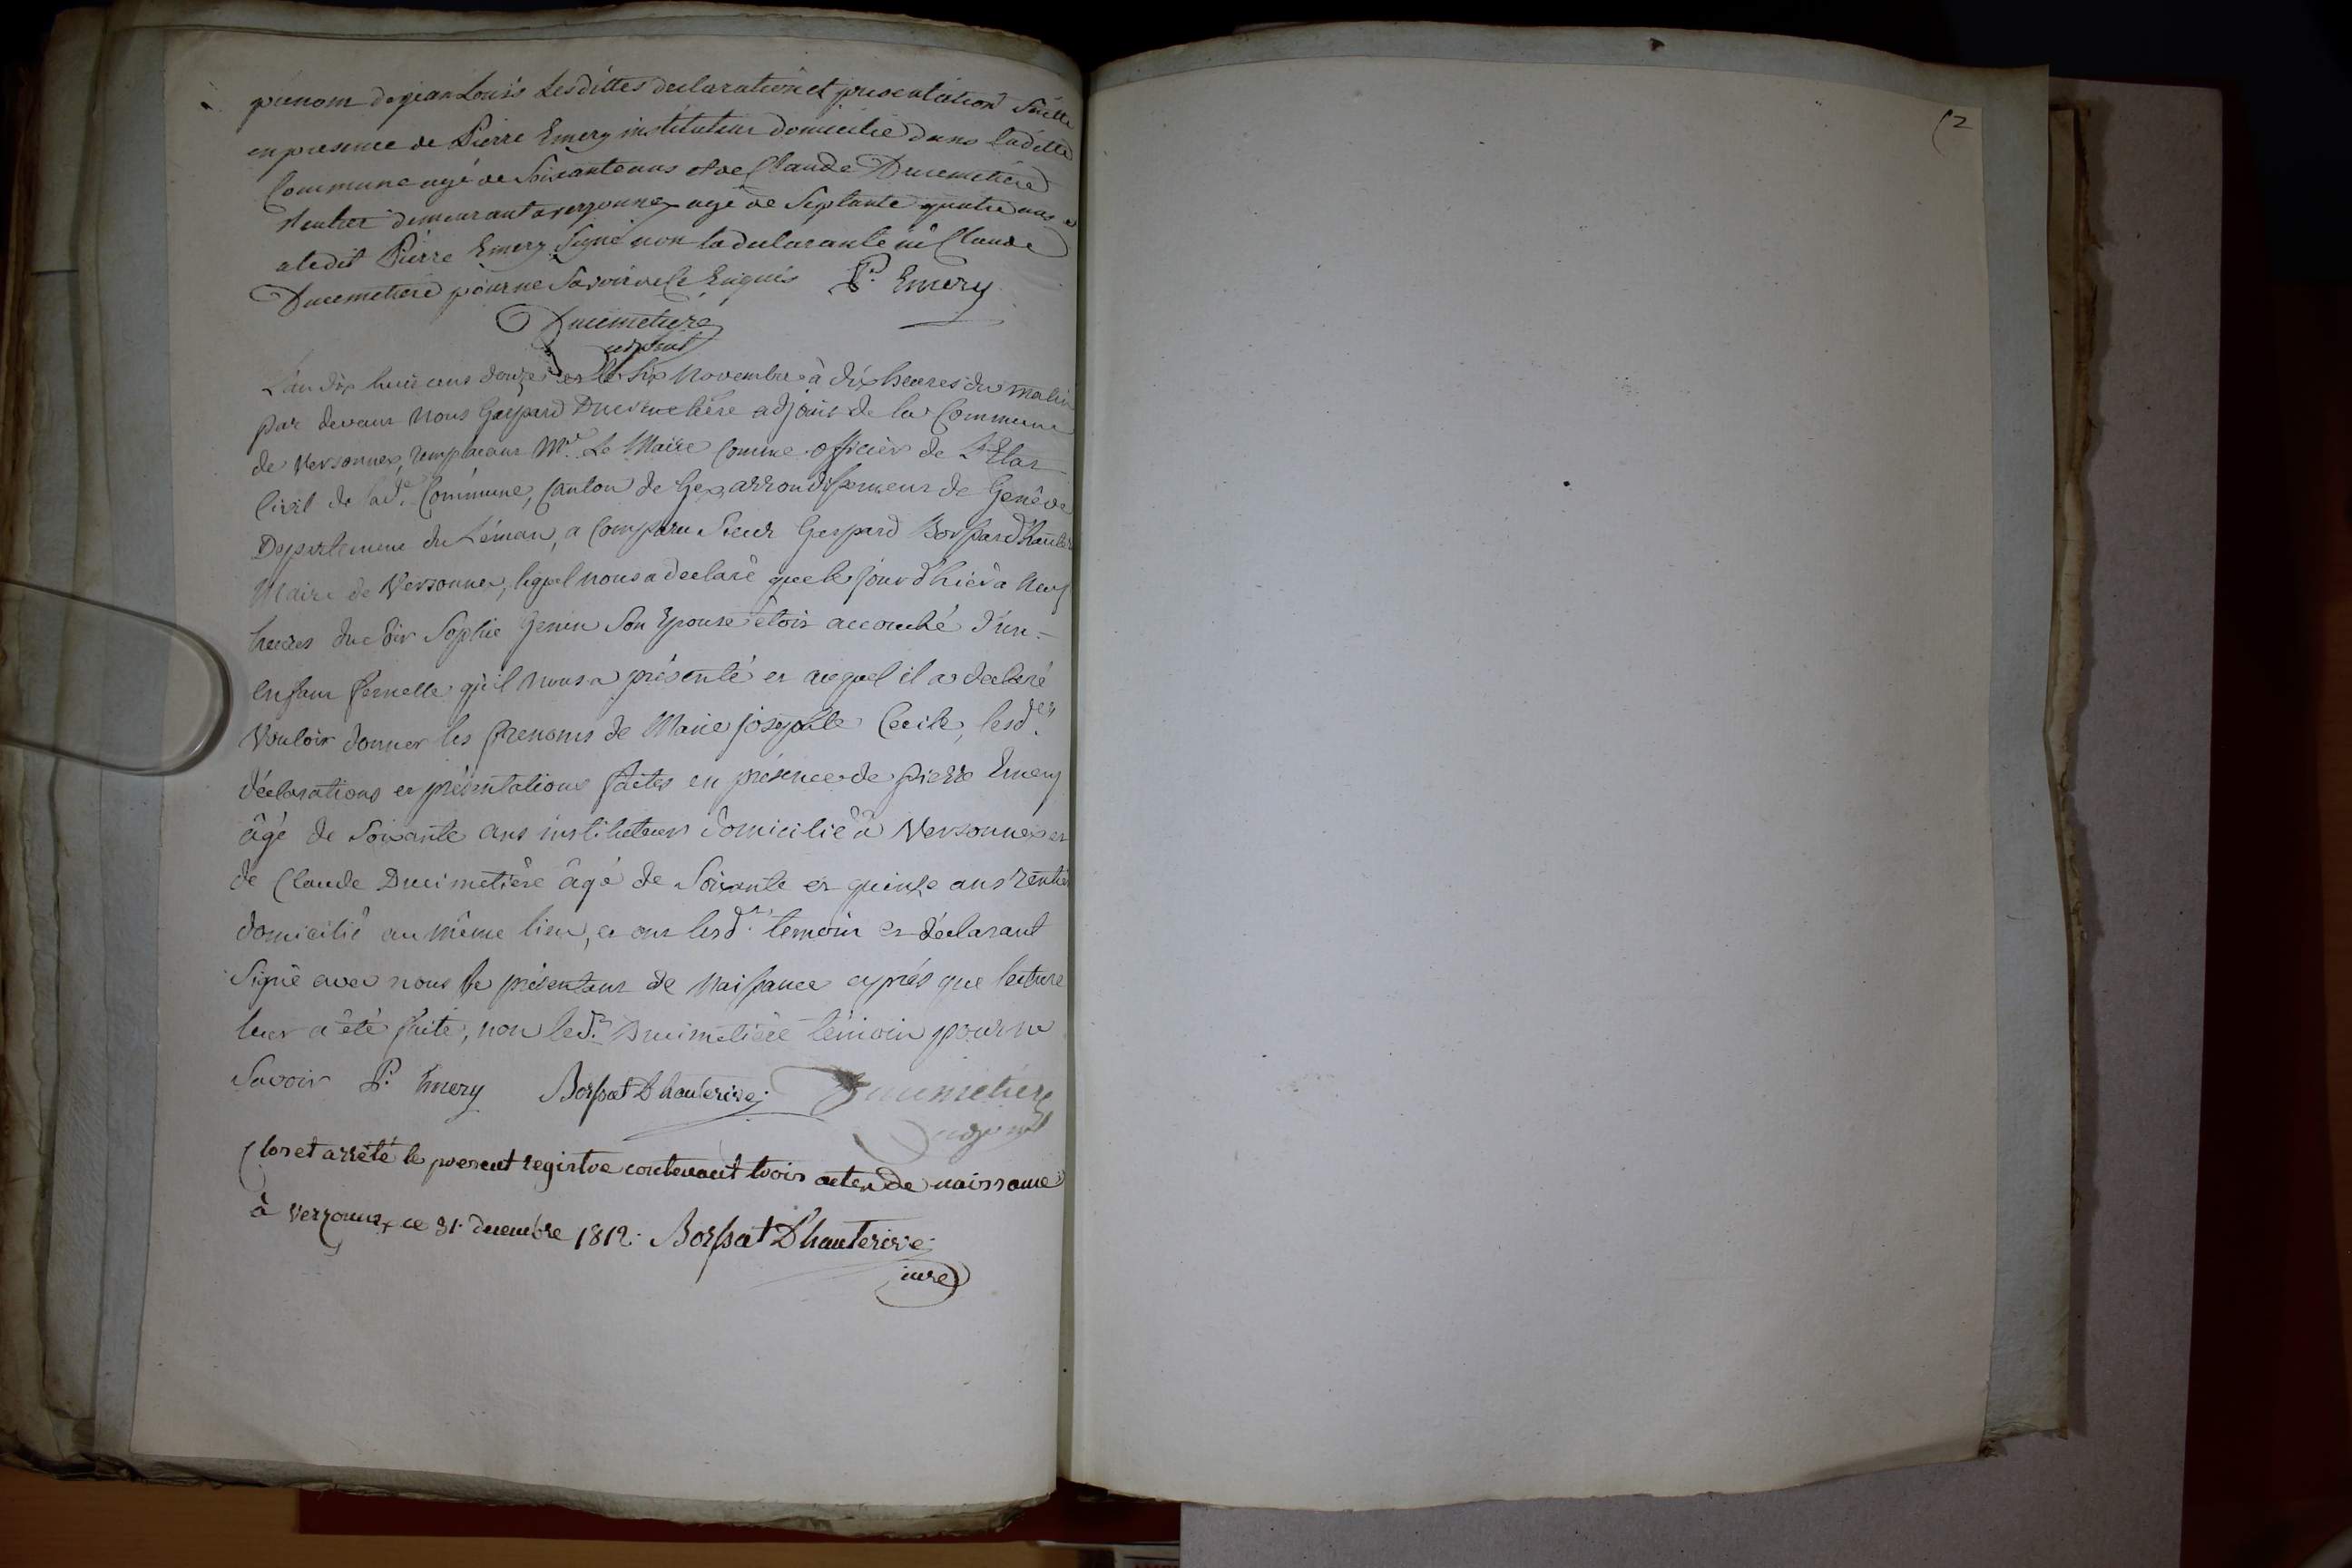 prenom de jean Louis Lesdittes declaration et presentation faitte
en presence de Pierre Emery instituteur domicilié dans laditte
Commune agé de Soixante ans et de Claude Ducimetiere
Rentier demeurant a verzonnex agé de Septante quatre ans et
a ledit Pierre Emery Signé non la declarante ni Claude
Ducimetiere pour ne Savoir de ce Enquis P. Emery
Ducimetiere
adjoint
L'an dix huit cens douze et le Six Novembre à dix heures du matin
par devant Nous Gaspard Ducimetière adjoint de la Commune
de Versonnex, remplacant Mr. Le Maire Comme officier de L'Etat
Civil de lade. Commune, Canton de Gex, arrondissement de Genève
Departement du Léman, a Comparu Sieur Gaspard Borssat d'hauter
Maire de Versonnex, lequel nous a declaré que le jour d'hier à Neuf
heures du Soir Sophie Genin Son Epouse étoit accouché d'un
Enfant femelle qu'il nous a présenté et auquel il a declaré
Vouloir donner les prenoms de Marie josephte Cecile, lesd.es
déclarations et présentations faites en présence de pierre Emery
âgé de Soixante ans instituteur domicilié à Versonnex et
de Claude Ducimetière âgé de Soixante et quinze ans rentier
domicilié au même lieu, et ont lesd. temoin et déclarant
Signé avec nous le présent acte de Naissance après que lecture
leur a été faite, non led.t Ducimetière témoin pour ne
Savoir P. Emery Borssat D'hauterive Ducimetiere
adjoint
Clos et arrêté le present registre contenant trois actes de naissance
à Verzonnex ce 31. decembre 1812. Borssat D'hauterive
maire
52